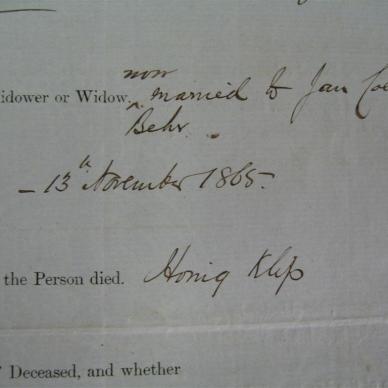 now
idower or Widow ^ married to Jan Coe
Behr.
- 13th November 1865.
the Person died. Honig Klip
Deceased, and whether